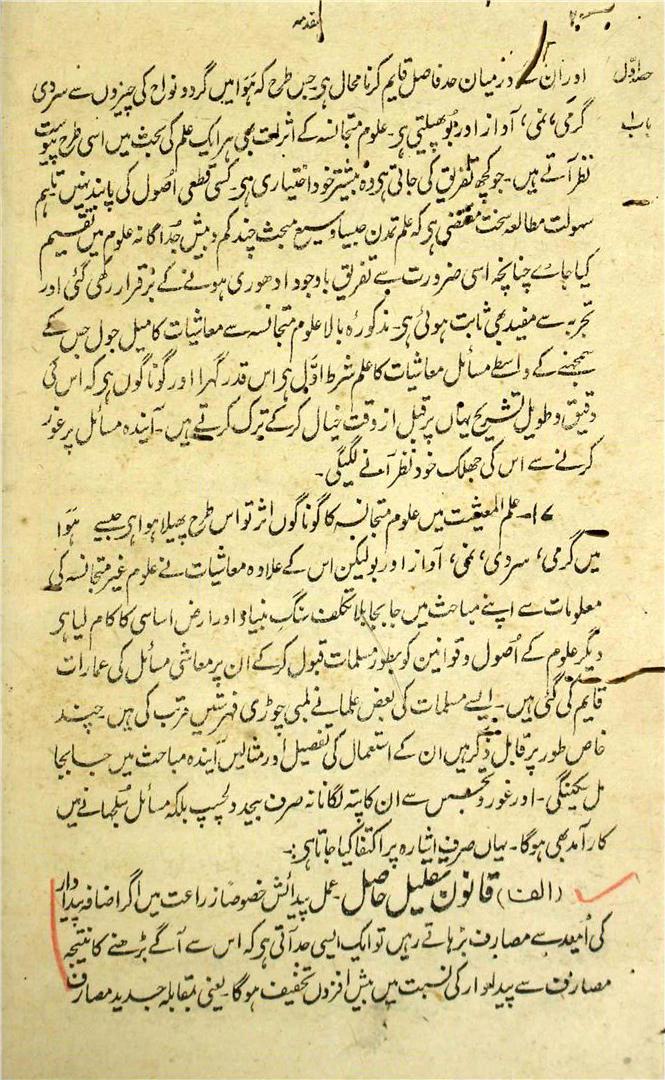 مقدمہ
حصہ اول
باب ۱
اور ان کے درمیان حد فاصل قایم کرنا محال ہی۔ جس طرح کہ ہَوا میں گرد و نواح کی چیزوں سے سردی
گرمی، نمی، آواز اور بُو پھیلتی ہی۔ علوم متجانسہ کے اثرات بھی ہر ایک علم کی بحث میں اسی طرح پیوست
نظر آتے ہیں۔ جو کچھ تفریق کی جاتی ہی وہ بیشتر خود اختیاری ہی۔ کسی قطعی اُصول کی پابند نہیں تاہم
سہولت مطالعہ سخت مقتضی ہی کہ علم تمدن جیسا وسیع مبحث چند کم و بیش جُداگانہ علوم میں تقسیم
کیا جاے چنانچہ اسی ضرورت سے تفریق باوجود ادھوری ہونے کے برقرار رکھی گئی اور
تجربہ سے مفید بھی ثابت ہوئی ہی۔ مذکورۂ بالا علوم متجانسہ سے معاشیات کا میل جول جس کے
سمجھنے کے واسطے مسائل معاشیات کا علم شرط اوّل ہی اس قدر گہرا اور گوناگوں ہی کہ اس کی
دقیق و طویل تشریح یہاں پر قبل از وقت خیال کرکے ترک کرتے ہیں۔ آیندہ مسائل پر غور
کرنے سے اس کی جھلک خود نظر آنے لگیگی۔
۱۷۔ علم المعیشت میں علوم متجانسہ کا گوناگوں اثر تو اس طرح پھیلا ہوا ہی جیسے ہَوا
میں گرمی، سردی، نمی، آواز اور بو لیکن اس کے علاوہ معاشیات نے علوم غیر متجانسہ کی
معلومات سے اپنے مباحث میں جابجا بلا تکلف سنگِ بنیاد اور ارض اساسی کا کام لیا ہی
دیگر علوم کے اُصول و قوانین کو بطور مسلمات قبول کرکے ان پر معاشی مسائل کی عمارات
قایم کی گئی ہیں۔ ایسے مسلمات کی بعض علما نے لمبی چوڑی فہرستیں مرتب کی ہیں۔ چند
خاص طور پر قابل ذکر ہیں ان کے استعمال کی تفصیل اور مثالیں آیندہ مباحث میں جابجا
مل سکینگی۔ اور غور و تجسس سے ان کا پتہ لگانا نہ صرف بیحد دلچسپ بلکہ مسائل سُلجھانے میں
کارآمد بھی ہوگا۔ یہاں صرف اشارہ پر اکتفا کیا جاتا ہی:۔
(الف) قانون تقلیل حاصل۔ عمل پیدائش خصوصاً زراعت میں اگر اضافہ پیداوار
کی اُمید سے مصارف بڑہاتے رہیں تو ایک ایسی حد آتی ہی کہ اس سے آگے بڑھنے کا نتیجہ
مصارف سے پیداوار کی نسبت میں بیش افزوں تخفیف ہوگا۔ یعنی بمقابلہ جدید مصارف